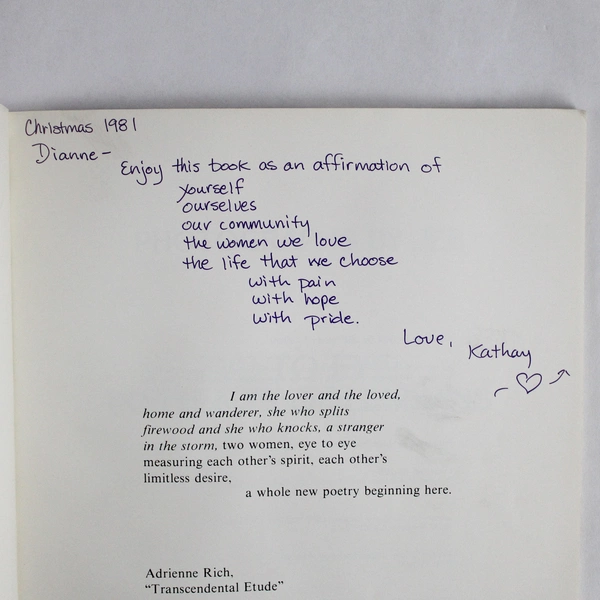 Christmas 1981
Dianne-
Enjoy this book as an affirmation of
yourself
ourselves
our community
the women we love
the life that we choose
with pain
with hope
with pride.
Love,
Kathay
I am the lover and the loved,
home and wanderer, she who splits
firewood and she who knocks, a stranger
in the storm, two women, eye to eye
measuring each other's spirit, each other's
limitless desire,
a whole new poetry beginning here.
Adrienne Rich,
"Transcendental Etude"